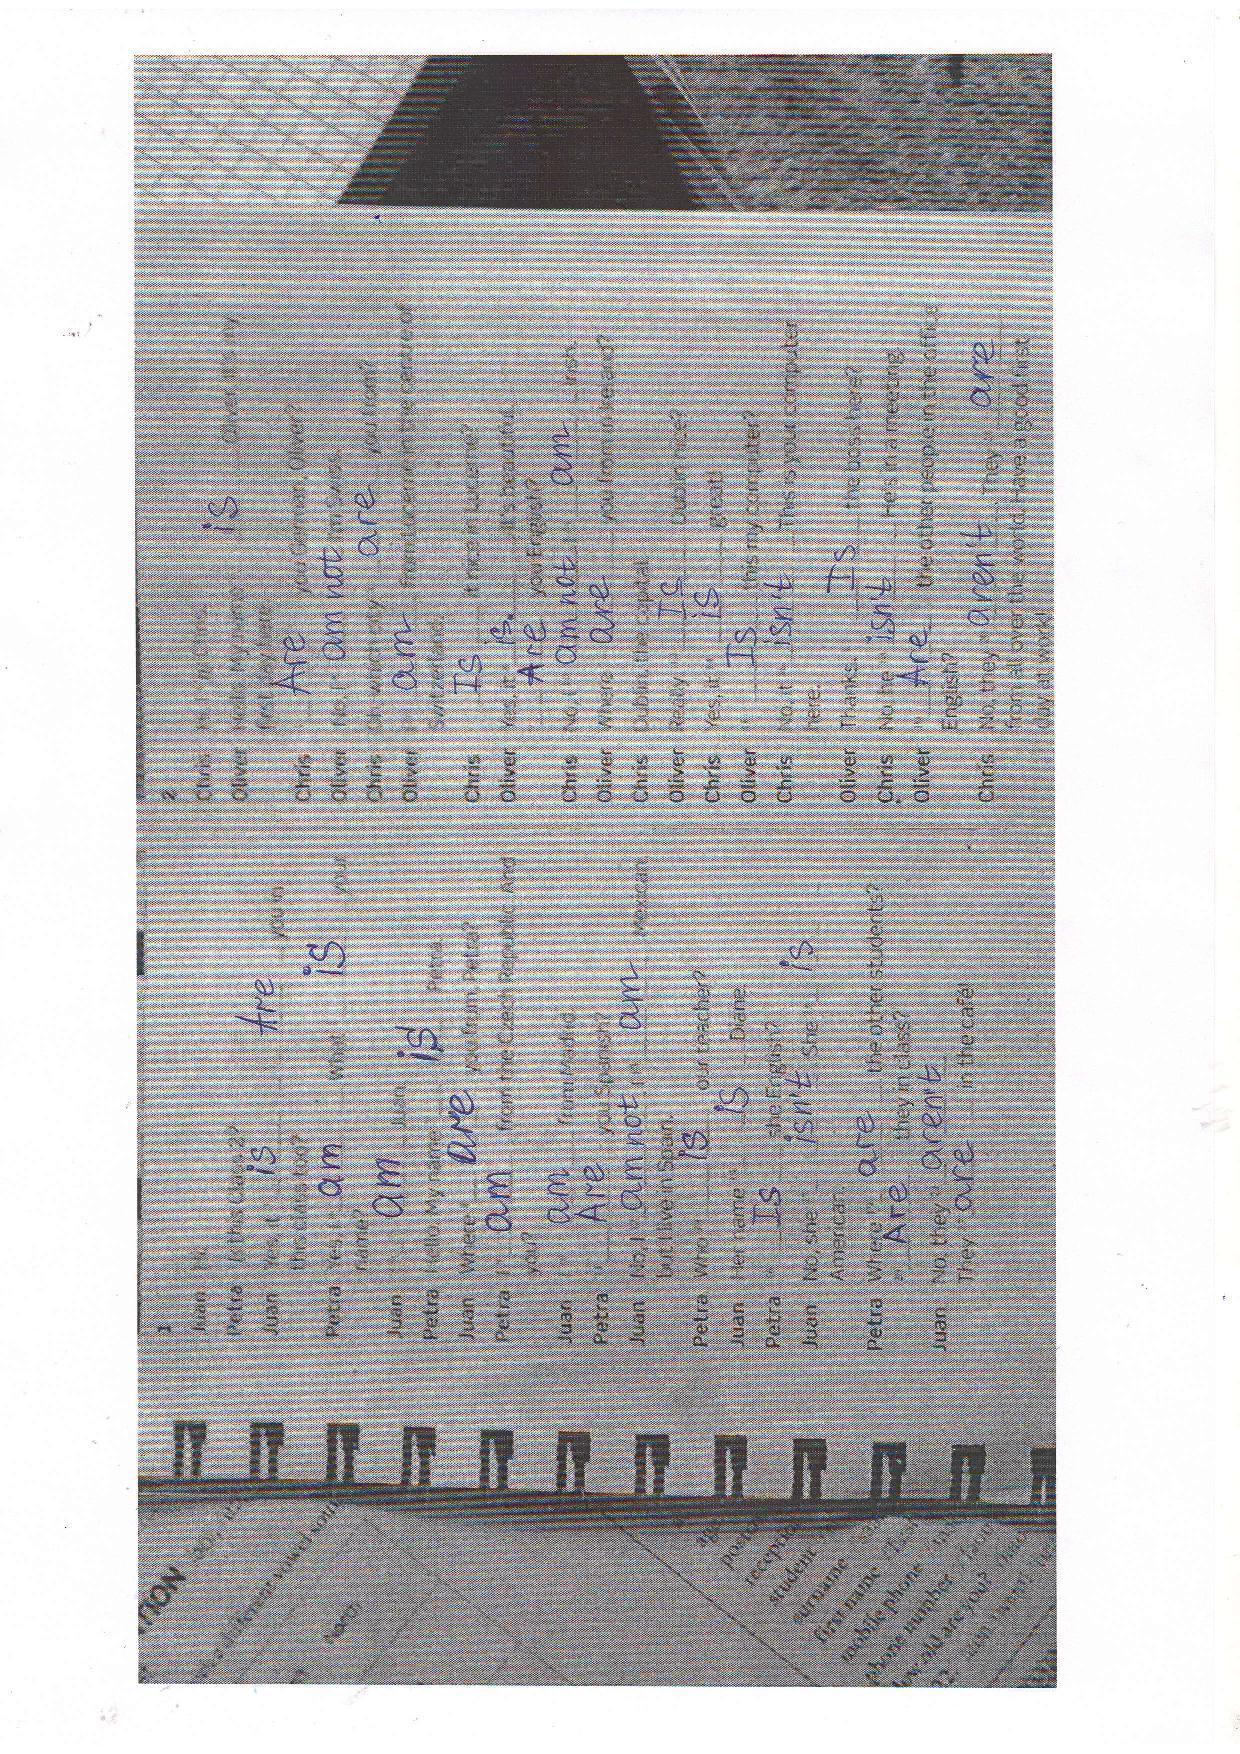 1
Juan Hi.
Petra Is this Class 2?
Juan Yes, it is. Are you in
this class too?
Petra Yes, I am. What is your
name?
Juan I am Juan.
Petra Hello. My name is Petra.
Juan Where are you from, Petra?
Petra I am from the Czech Republic. And
you?
Juan I am from Madrid.
Petra Are you Spanish?
Juan No, I am not. I am Mexican,
but I live in Spain.
Petra Who is our teacher?
Juan Her name is Diane.
Petra Is she English?
Juan No, she isn't. She is
American.
Petra Where are the other students?
Are they in class?
Juan No, they arent.
They are in the café!
2
Chris Hi, I'm Chris.
Oliver Hello. My name is Oliver. It's my
first day here.
Chris Are you German, Oliver?
Oliver No, I am not. I'm Swiss.
Chris Oh, which city are you from?
Oliver I am from Lucerne in the centre of
Switzerland.
Chris Is it nice in Lucerne?
Oliver Yes, it is. It's beautiful.
Are you English?
Chris No, I am not. I am Irish.
Oliver Where are you from in Ireland?
Chris Dublin, the capital.
Oliver Really? Is Dublin nice?
Chris Yes, it is great!
Oliver Is this my computer?
Chris No, it isn't. This is your computer
here.
Oliver Thanks. Is the boss here?
Chris No, he isn't. He's in a meeting.
Oliver Are the other people in the office
English?
Chris No, they aren't. They are
from all over the world. Have a good first
day at work!
TION
different vowel sound
age
postcode
receptionist
student
surname
first name
mobile phone
phone number
How old are you?